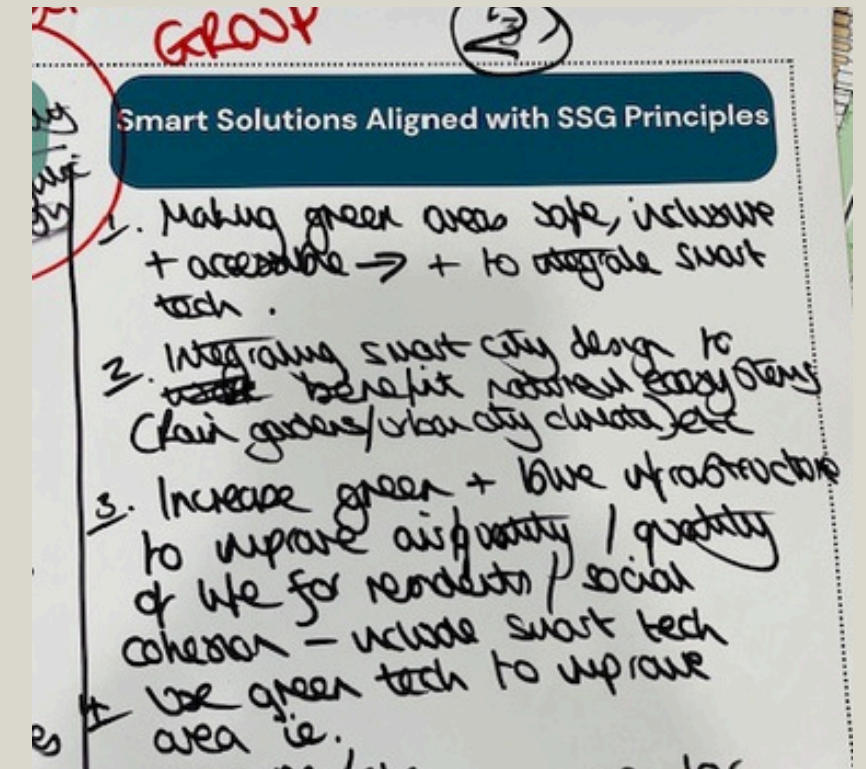 GROUP
Smart Solutions Aligned with SSG Principles
1. Making green areas safe, inclusive
+ accessible → + to integrate smart
tech.
2. Integrating smart city design to
benefit natural ecosystems
(Rain gardens/urban city climate) etc
3. Increase green + blue infrastructure
to improve air quality / quality
of life for residents / social
cohesion – include smart tech
4. Use green tech to improve
area ie.